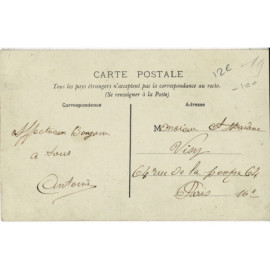 CARTE POSTALE
Tous les pays étrangers n'acceptent pas la correspondance au recto.
(Se renseigner à la Poste)
Correspondance
Adresse
Affectueux Bonjour
à tous
Antoine
Monsieur et Madame
64 rue de la pompe 64
Paris 16e